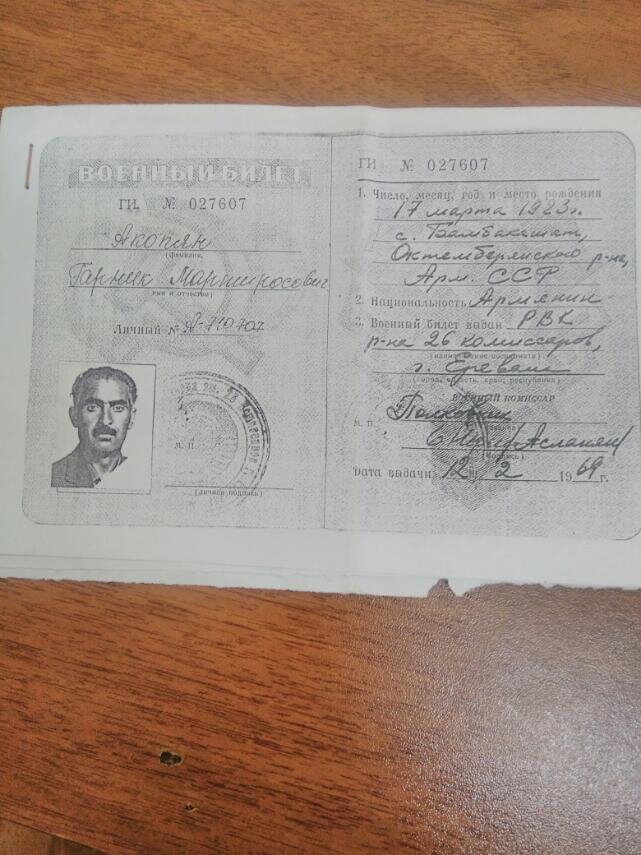 ВОЕННЫЙ БИЛЕТ
ГИ № 027607
Акопян
(фамилия,
Гарник Мартиросович
имя и отчество)
Личный № А-710707
М. П.
(личная подпись)
ГИ № 027607
1. Число, месяц, год и место рождения
17 марта 1923г.
с. Бамбакашат,
Октемберянского р-на,
Арм. ССР
2. Национальность Армянин
3. Военный билет выдан РВК
р-на 26 комиссаров,
(наименование военкомата)
г. Ереван
(город, область, край, республика)
ВОЕННЫЙ КОМИССАР
Полковник
М. П.
(звание)
(подпись)
Дата выдачи 12 2 1969 г.